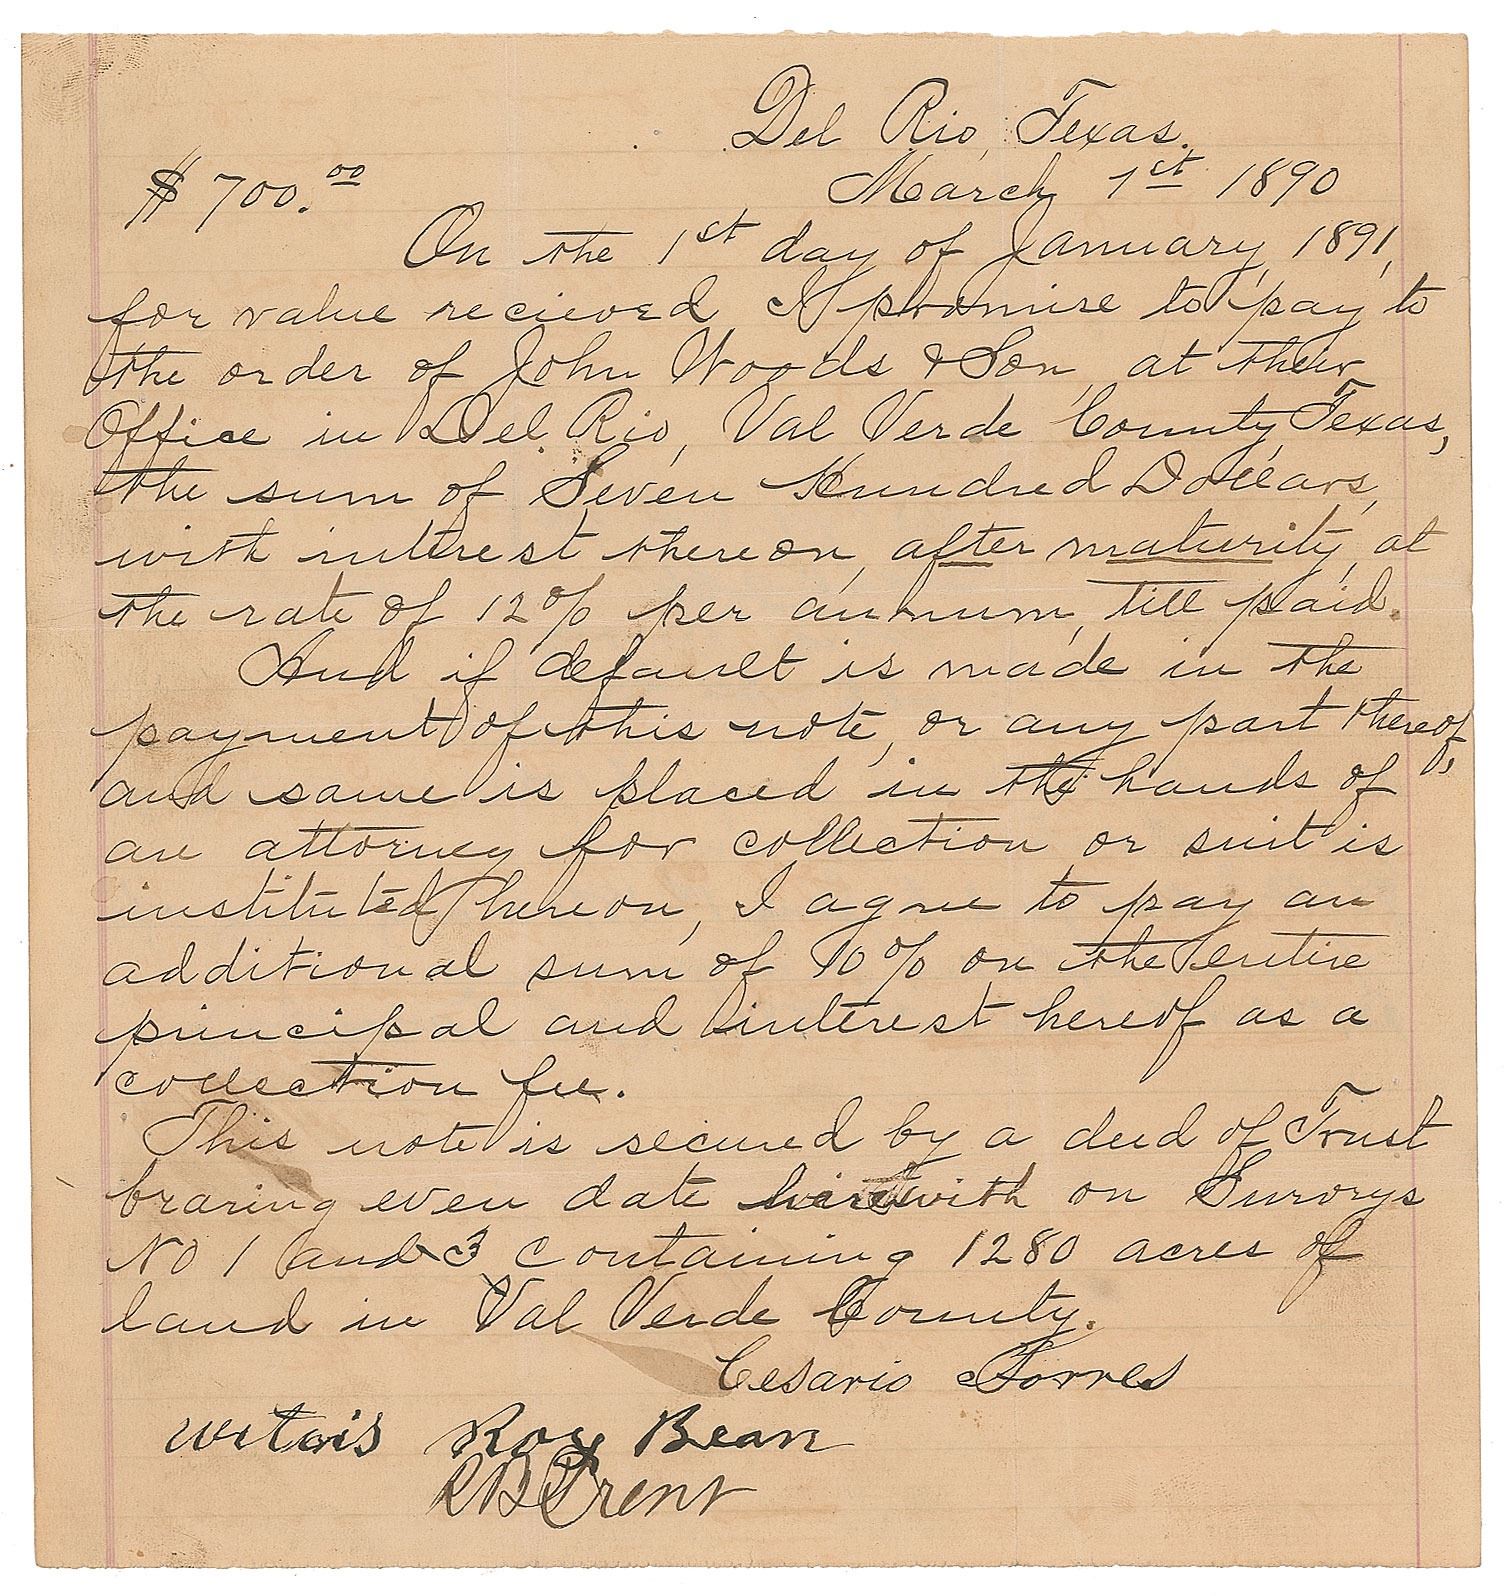 Del Rio, Texas.
$700.00 March 1st 1890
On the 1st day of January, 1891,
for value recieved I promise to pay to
the order of John Woods & Son, at their
Office in Del Rio, Val Verde County, Texas,
the sum of Seven Hundred Dollars,
with interest thereon, after maturity, at
the rate of 12% per annum, till paid.
And if default is made in the
payment of this note, or any part thereof,
and same is placed in the hands of
an attorney for collection or suit is
instituted hereon, I agree to pay an
additional sum of 10% on the entire
principal and interest hereof as a
collection fee.
This note is secured by a deed of Trust
bearing even date herewith on Surveys
No 1 and 3 containing 1280 acres of
land in Val Verde County.
Cesario Torres
Witnis Roy Bean
Trent